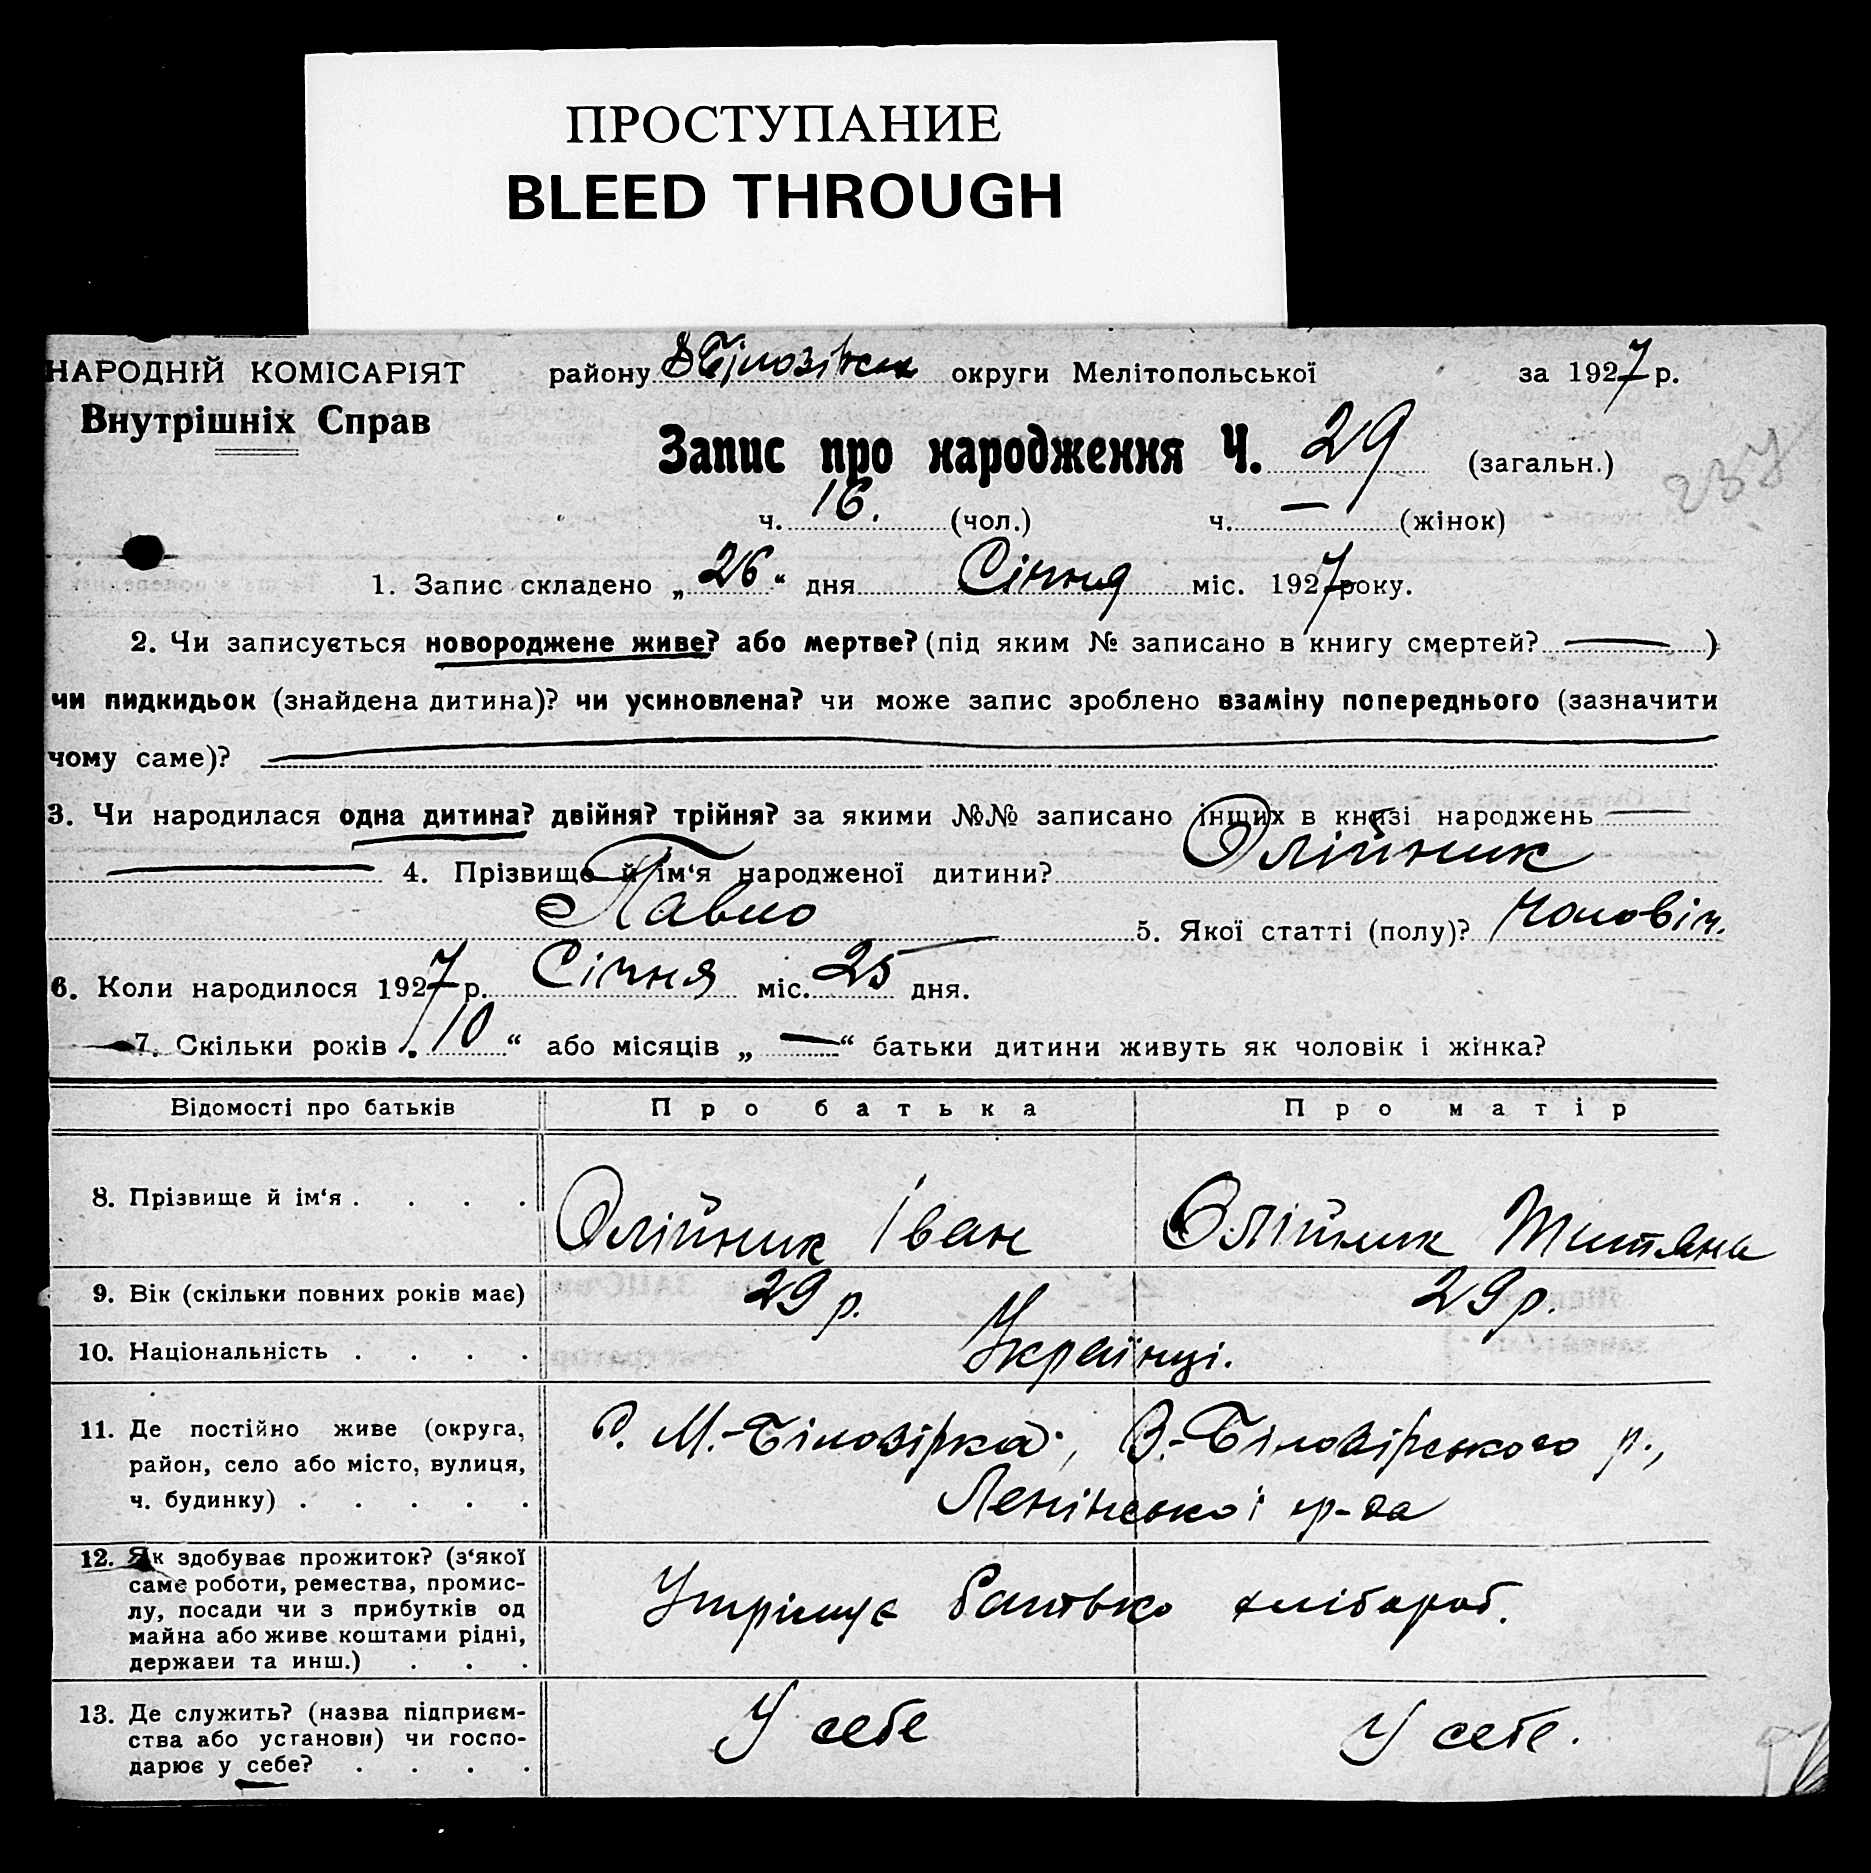 ПРОСТУПАНИЕ
BLEED THROUGH
НАРОДНІЙ КОМІСАРІЯТ району округи Мелітопольської за 1927 р.
Внутрішніх Справ
Запис про народження Ч. 29 (загальн.)
237
ч. 16. (чол.) ч. — (жінок)
1. Запис складено „26“ дня Січня міс. 1927 року.
2. Чи записується новороджене живе? або мертве? (під яким № записано в книгу смертей? — )
чи пидкидьок (знайдена дитина)? чи усиновлена? чи може запис зроблено взаміну попереднього (зазначити
чому саме)? —
3. Чи народилася одна дитина? двійня? трійня? за якими №№ записано інших в книзі народжень —
— 4. Прізвище й ім‘я народженої дитини? Олійник
Павло 5. Якої статті (полу)? Чоловіч.
6. Коли народилося 1927 р. Січня міс. 25 дня.
7. Скільки років „10“ або місяців „—“ батьки дитини живуть як чоловік і жінка?
Відомості про батьків Про батька Про матір
8. Прізвище й ім‘я . . . . Олійник Іван Олійник Титяна
9. Вік (скільки повних років має) 29 р. 29 р.
10. Національність . . . . Українці.
11. Де постійно живе (округа,
район, село або місто, вулиця,
ч. будинку) . . . . .
С. М.-Білозірка, В.-Білозірського р.,
Ленінської
12. Як здобуває прожиток? (з‘якої
саме роботи, ремества, промис-
лу, посади чи з прибутків од
майна або живе коштами рідні,
держави та инш.) . . .
Утрімує батько хлібороб.
13. Де служить? (назва підприєм-
ства або установи) чи госпо-
дарює у себе? . . . .
У себе У себе.